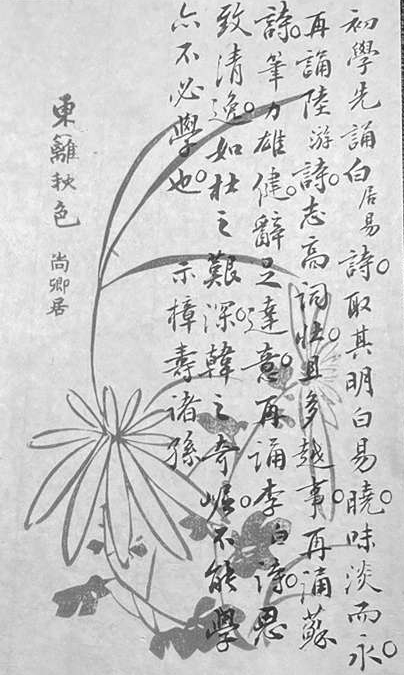 初學先誦白居易詩。取其明白易曉。味淡而永。
再誦陸游詩。志高詞壯。且多越事。再誦蘇
詩。筆力雄健。辭足達意。再誦李白詩。思
致清逸。如杜之艱深。韓之奇崛。不能學
亦不必學也。 示樟壽諸孫
東籬秋色
尚卿居